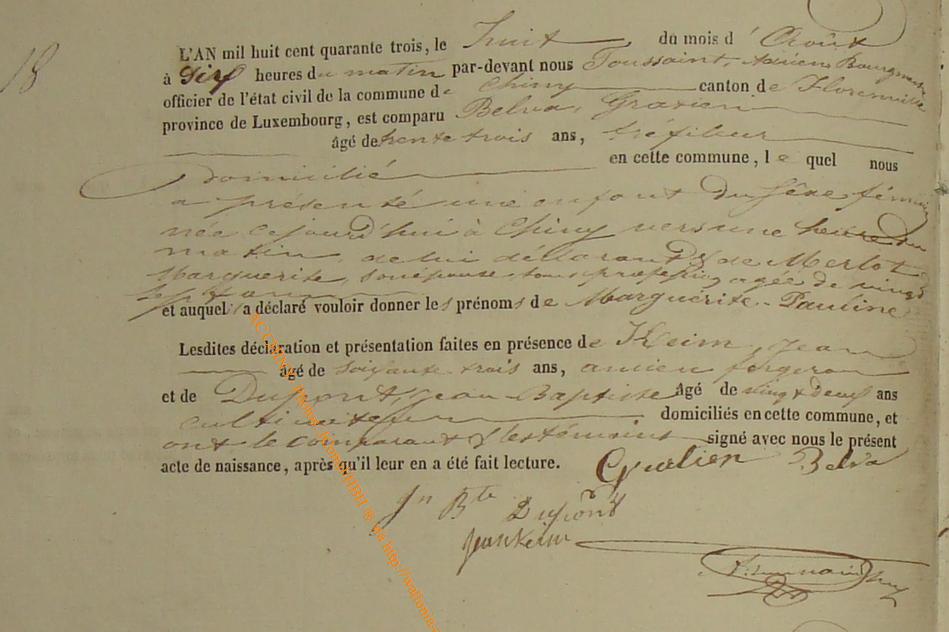 18
L'AN mil huit cent quarante trois, le huit du mois d'Août
à Six heures du matin par-devant nous Toussaint, Adrien Bourgmestre
officier de l'état civil de la commune de Chiny canton de Florenville
province de Luxembourg, est comparu Belva, Gratien
âgé de trente trois ans, tréfileur
domicilié en cette commune, lequel nous
a présenté une enfant du sexe féminin
née cejourd'hui à Chiny vers une heure du
matin, de lui déclarant & de Merlot
Marguerite, son épouse, sans profession, agée de vingt
sept ans
et auquel a déclaré vouloir donner les prénoms de Marguerite-Pauline
Lesdites déclaration et présentation faites en présence de Keim, Jean
âgé de soixante-trois ans, ancien forgeron
et de Dupont, Jean Baptiste âgé de vingt deux ans
cultivateur domiciliés en cette commune, et
ont le comparant & les témoins signé avec nous le présent
acte de naissance, après qu'il leur en a été fait lecture.
Belva
Jn Bte Dupont
Jean Keim